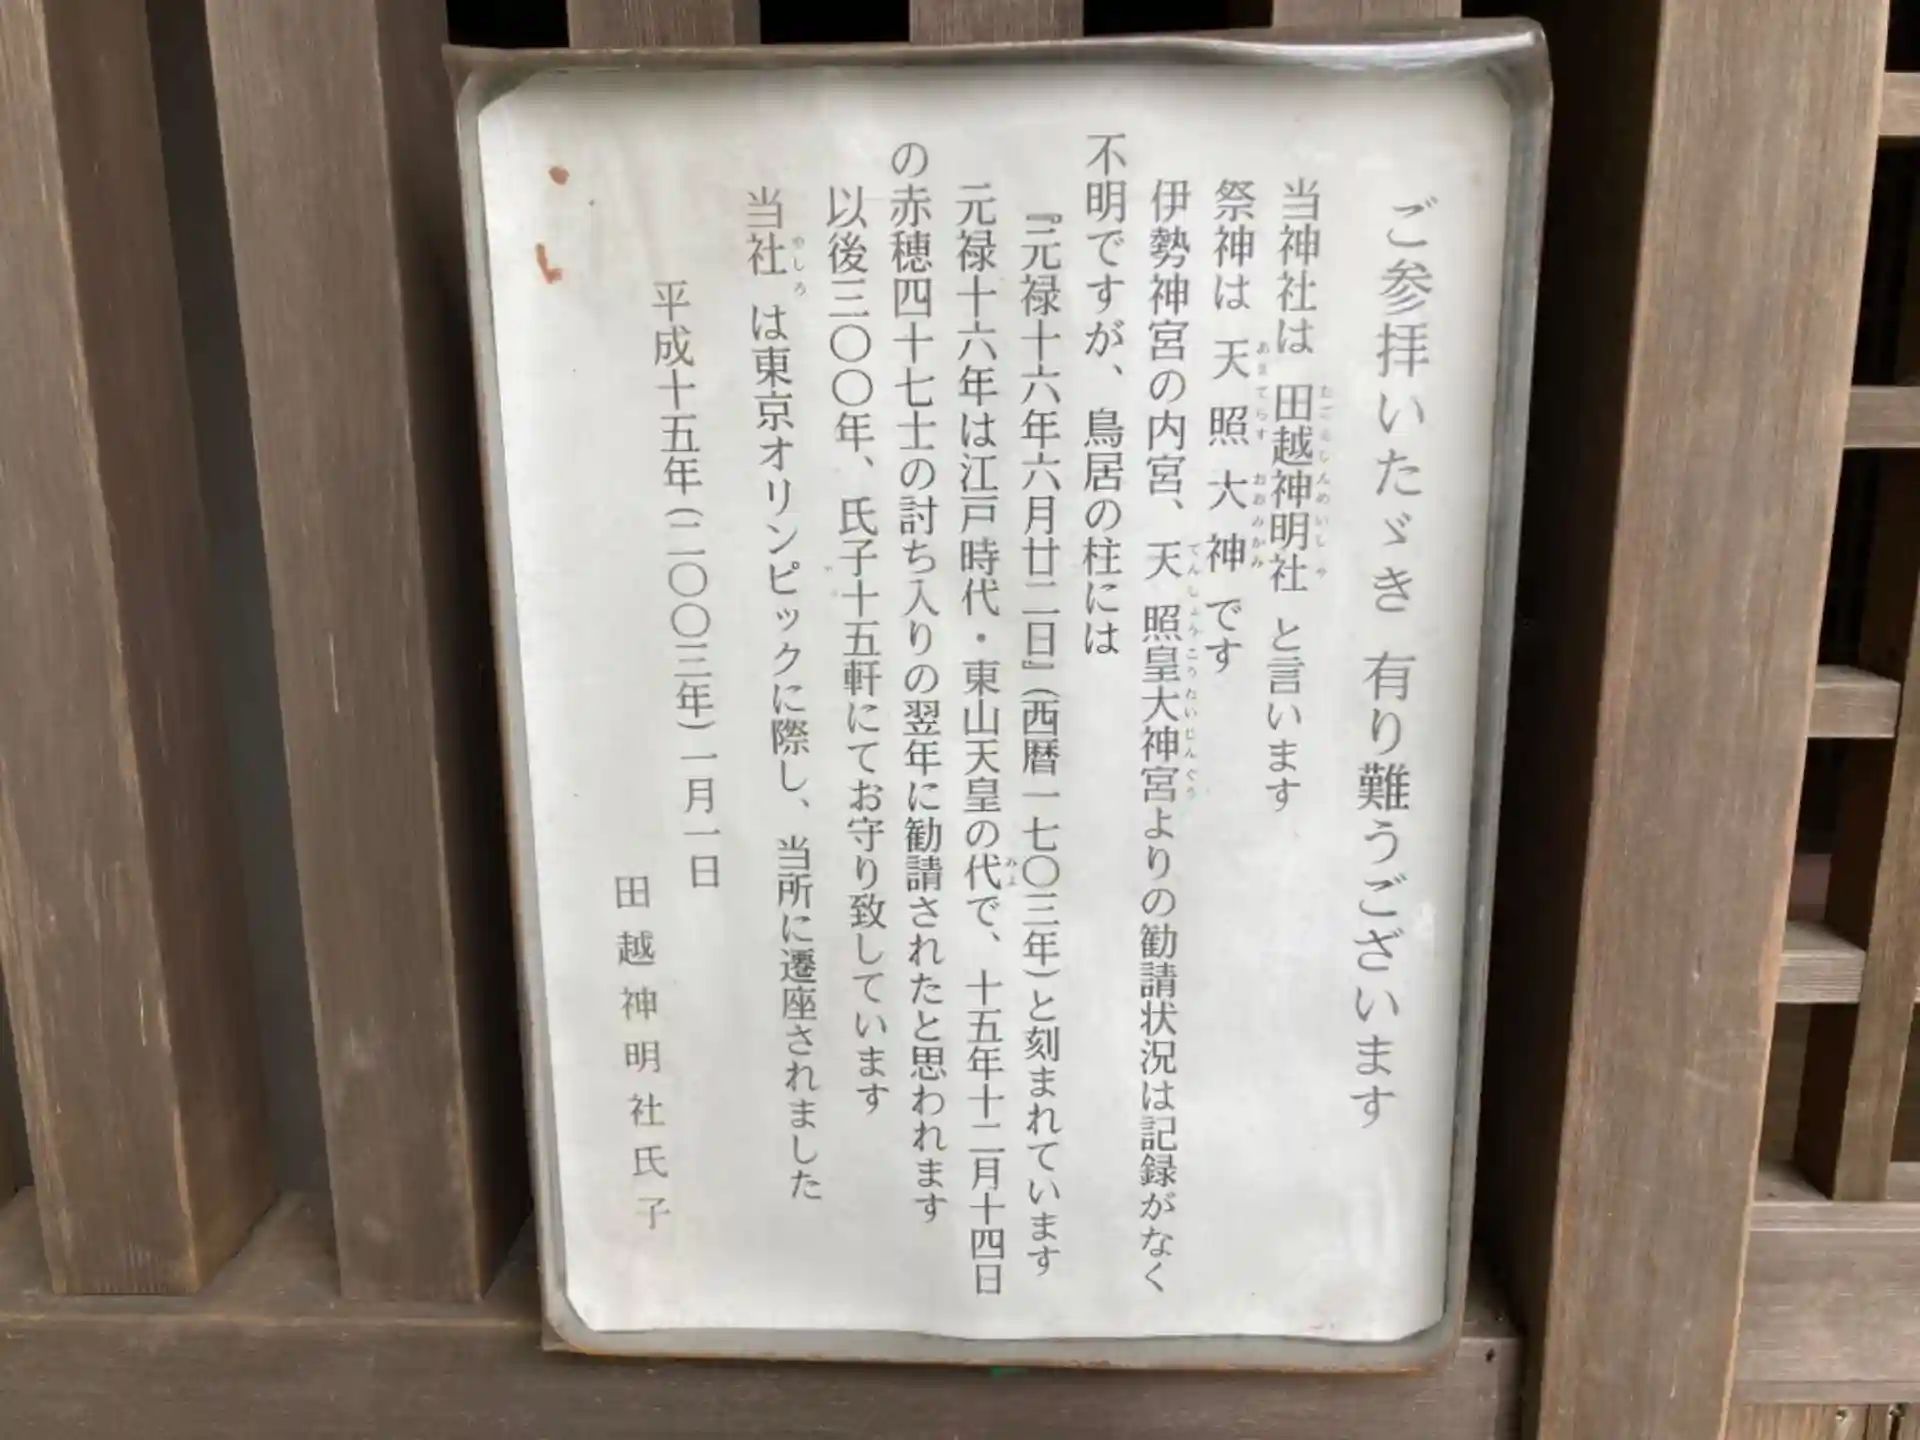 ご参拝いたゞき 有り難うございます
当神社は 田越神明社 と言います
祭神は 天照大神 です
伊勢神宮の内宮、天照皇大神宮よりの勧請状況は記録がなく
不明ですが、鳥居の柱には
『元禄十六年六月廿二日』(西暦一七〇三年)と刻まれています
元禄十六年は江戸時代・東山天皇の代で、十五年十二月十四日
の赤穂四十七士の討ち入りの翌年に勧請されたと思われます
以後三〇〇年、氏子十五軒にてお守り致しています
当社 は東京オリンピックに際し、当所に遷座されました
平成十五年(二〇〇三年)一月一日
田越神明社氏子